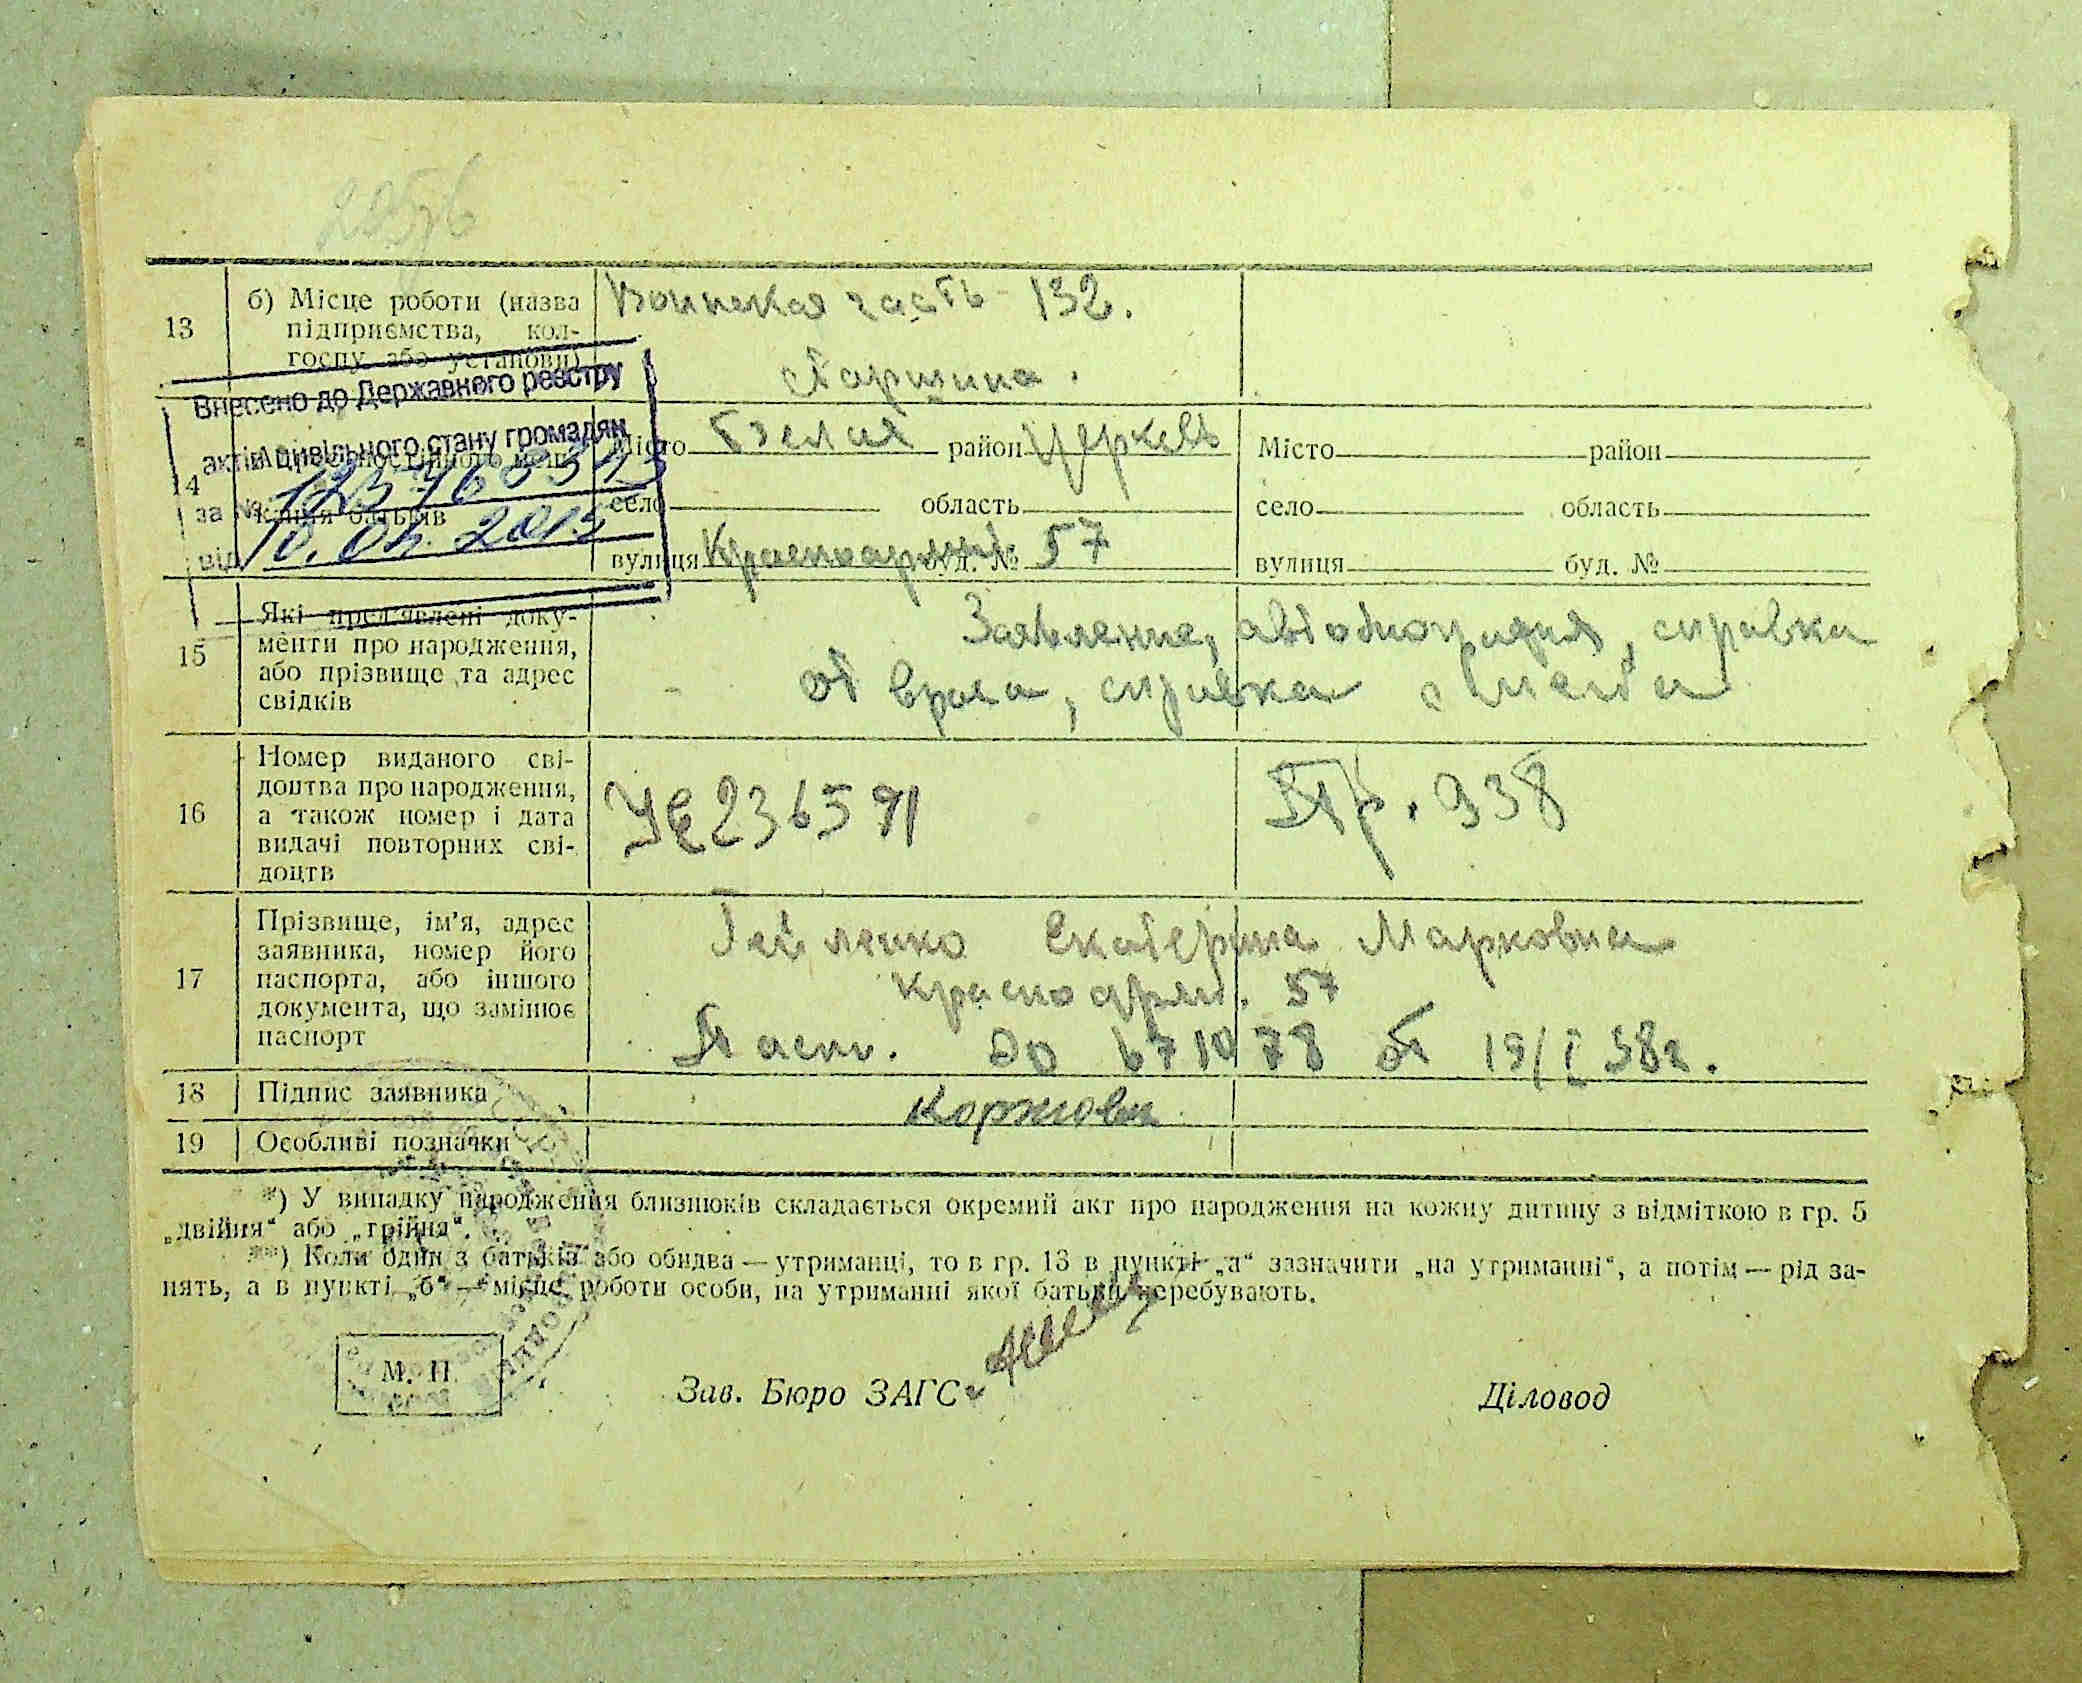 13
б) Місце роботи (назва
підприємства, кол-
госпу або установи)
Воинская часть - 132.
старшина.
Внесено до Державного реєстру
актів цивільного стану громадян
за №
від 10.04.2013
14
кання батьків
Місто Белая район Церковь
село область
вулиця Красноарм. буд. № 57
Місто район
село область
вулиця буд. №
15
Які пред'явлені доку-
менти про народження,
або прізвище та адрес
свідків
Заявление, справка
от врача, справка с места
16
Номер виданого сві-
доцтва про народження,
а також номер і дата
видачі повторних сві-
доцтв
УЄ 236591
Пр. 938
17
Прізвище, ім'я, адрес
заявника, номер його
паспорта, або іншого
документа, що замінює
паспорт
Екатерина Марковна
Красноарм. 57
Пасп. до 671078 от 19/I 38г.
18 Підпис заявника
19 Особливі позначки
*) У випадку народження близнюків складається окремий акт про народження на кожну дитину з відміткою в гр. 5
„двійня“ або „трійня“.
**) Коли один з батьків або обидва — утриманці, то в гр. 13 в пункті „а“ зазначити „на утриманні“, а потім — рід за-
нять, а в пункті „б“ — місце роботи особи, на утриманні якої батьки перебувають.
М. П.
Зав. Бюро ЗАГС
Діловод